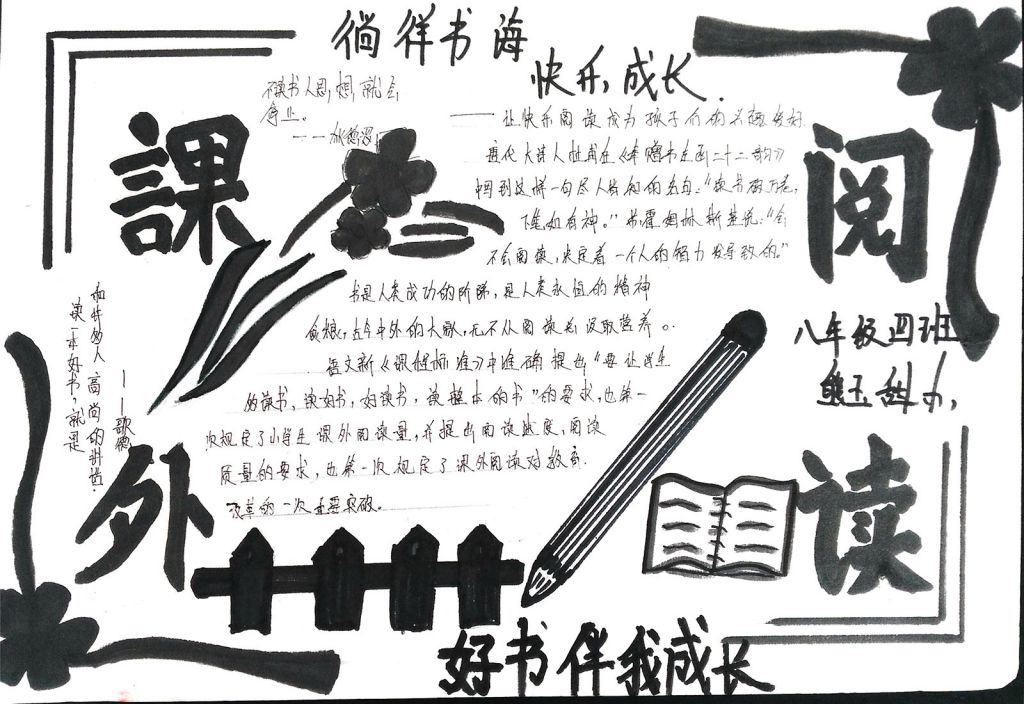 徜徉书海
快乐成长
课外
阅读
不读书人思想就会
停止。
——让快乐阅读成为孩子们的兴趣爱好
唐代大诗人杜甫在《奉赠韦左丞二十二韵》
中写到这样一句尽人皆知的名句："读书破万卷,
下笔如有神。"
不会阅读,决定着一个人的智力发导致的"
书是人类成功的阶梯,是人类永恒的精神
食粮,古今中外的大家,无不从阅读后汲取营养。
语文新《课程标准》中准确提出"要让学生
好读书、读好书,好读书,读整本的书"的要求,也第一
次规定了小学生课外阅读量,并提出阅读速度,阅读
质量的要求,也第一次规定了课外阅读对教育
改革的一次重要突破。
读一本好书,就是
和许多人高尚的讲话.
——歌德
八年级四班
好书伴我成长